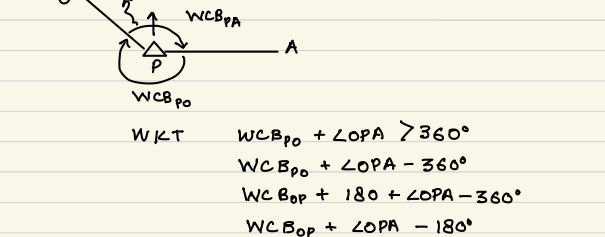 WCB_PA
A
P
WCB_PO
WKT WCB_PO + ∠OPA > 360°
WCB_PO + ∠OPA - 360°
WCB_OP + 180 + ∠OPA - 360°
WCB_OP + ∠OPA - 180°